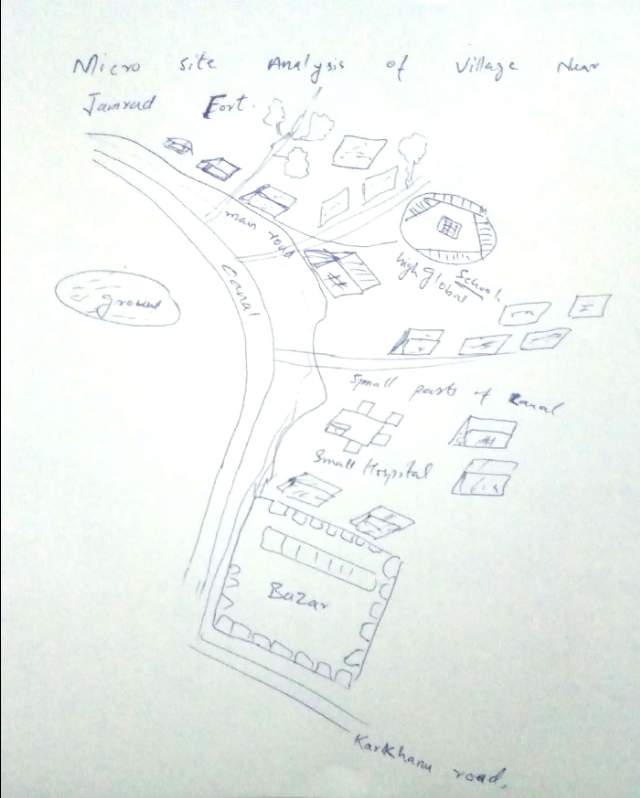 Micro site Analysis of Village Near
Jamrud Fort.
main road
Canal
ground
high Global
School.
Small parts of Canal
Small Hospital
Bazar
Karkhanu road,